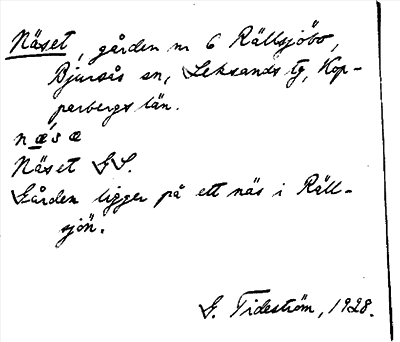 Näset, gården nr 6 Rällsjöbo,
Bjursås sn, Leksands tg, Kop-
parbergs län.
næ̀sæ
Näset GS.
Gården ligger på ett näs i Räll-
sjön.
G. Tideström, 1928.